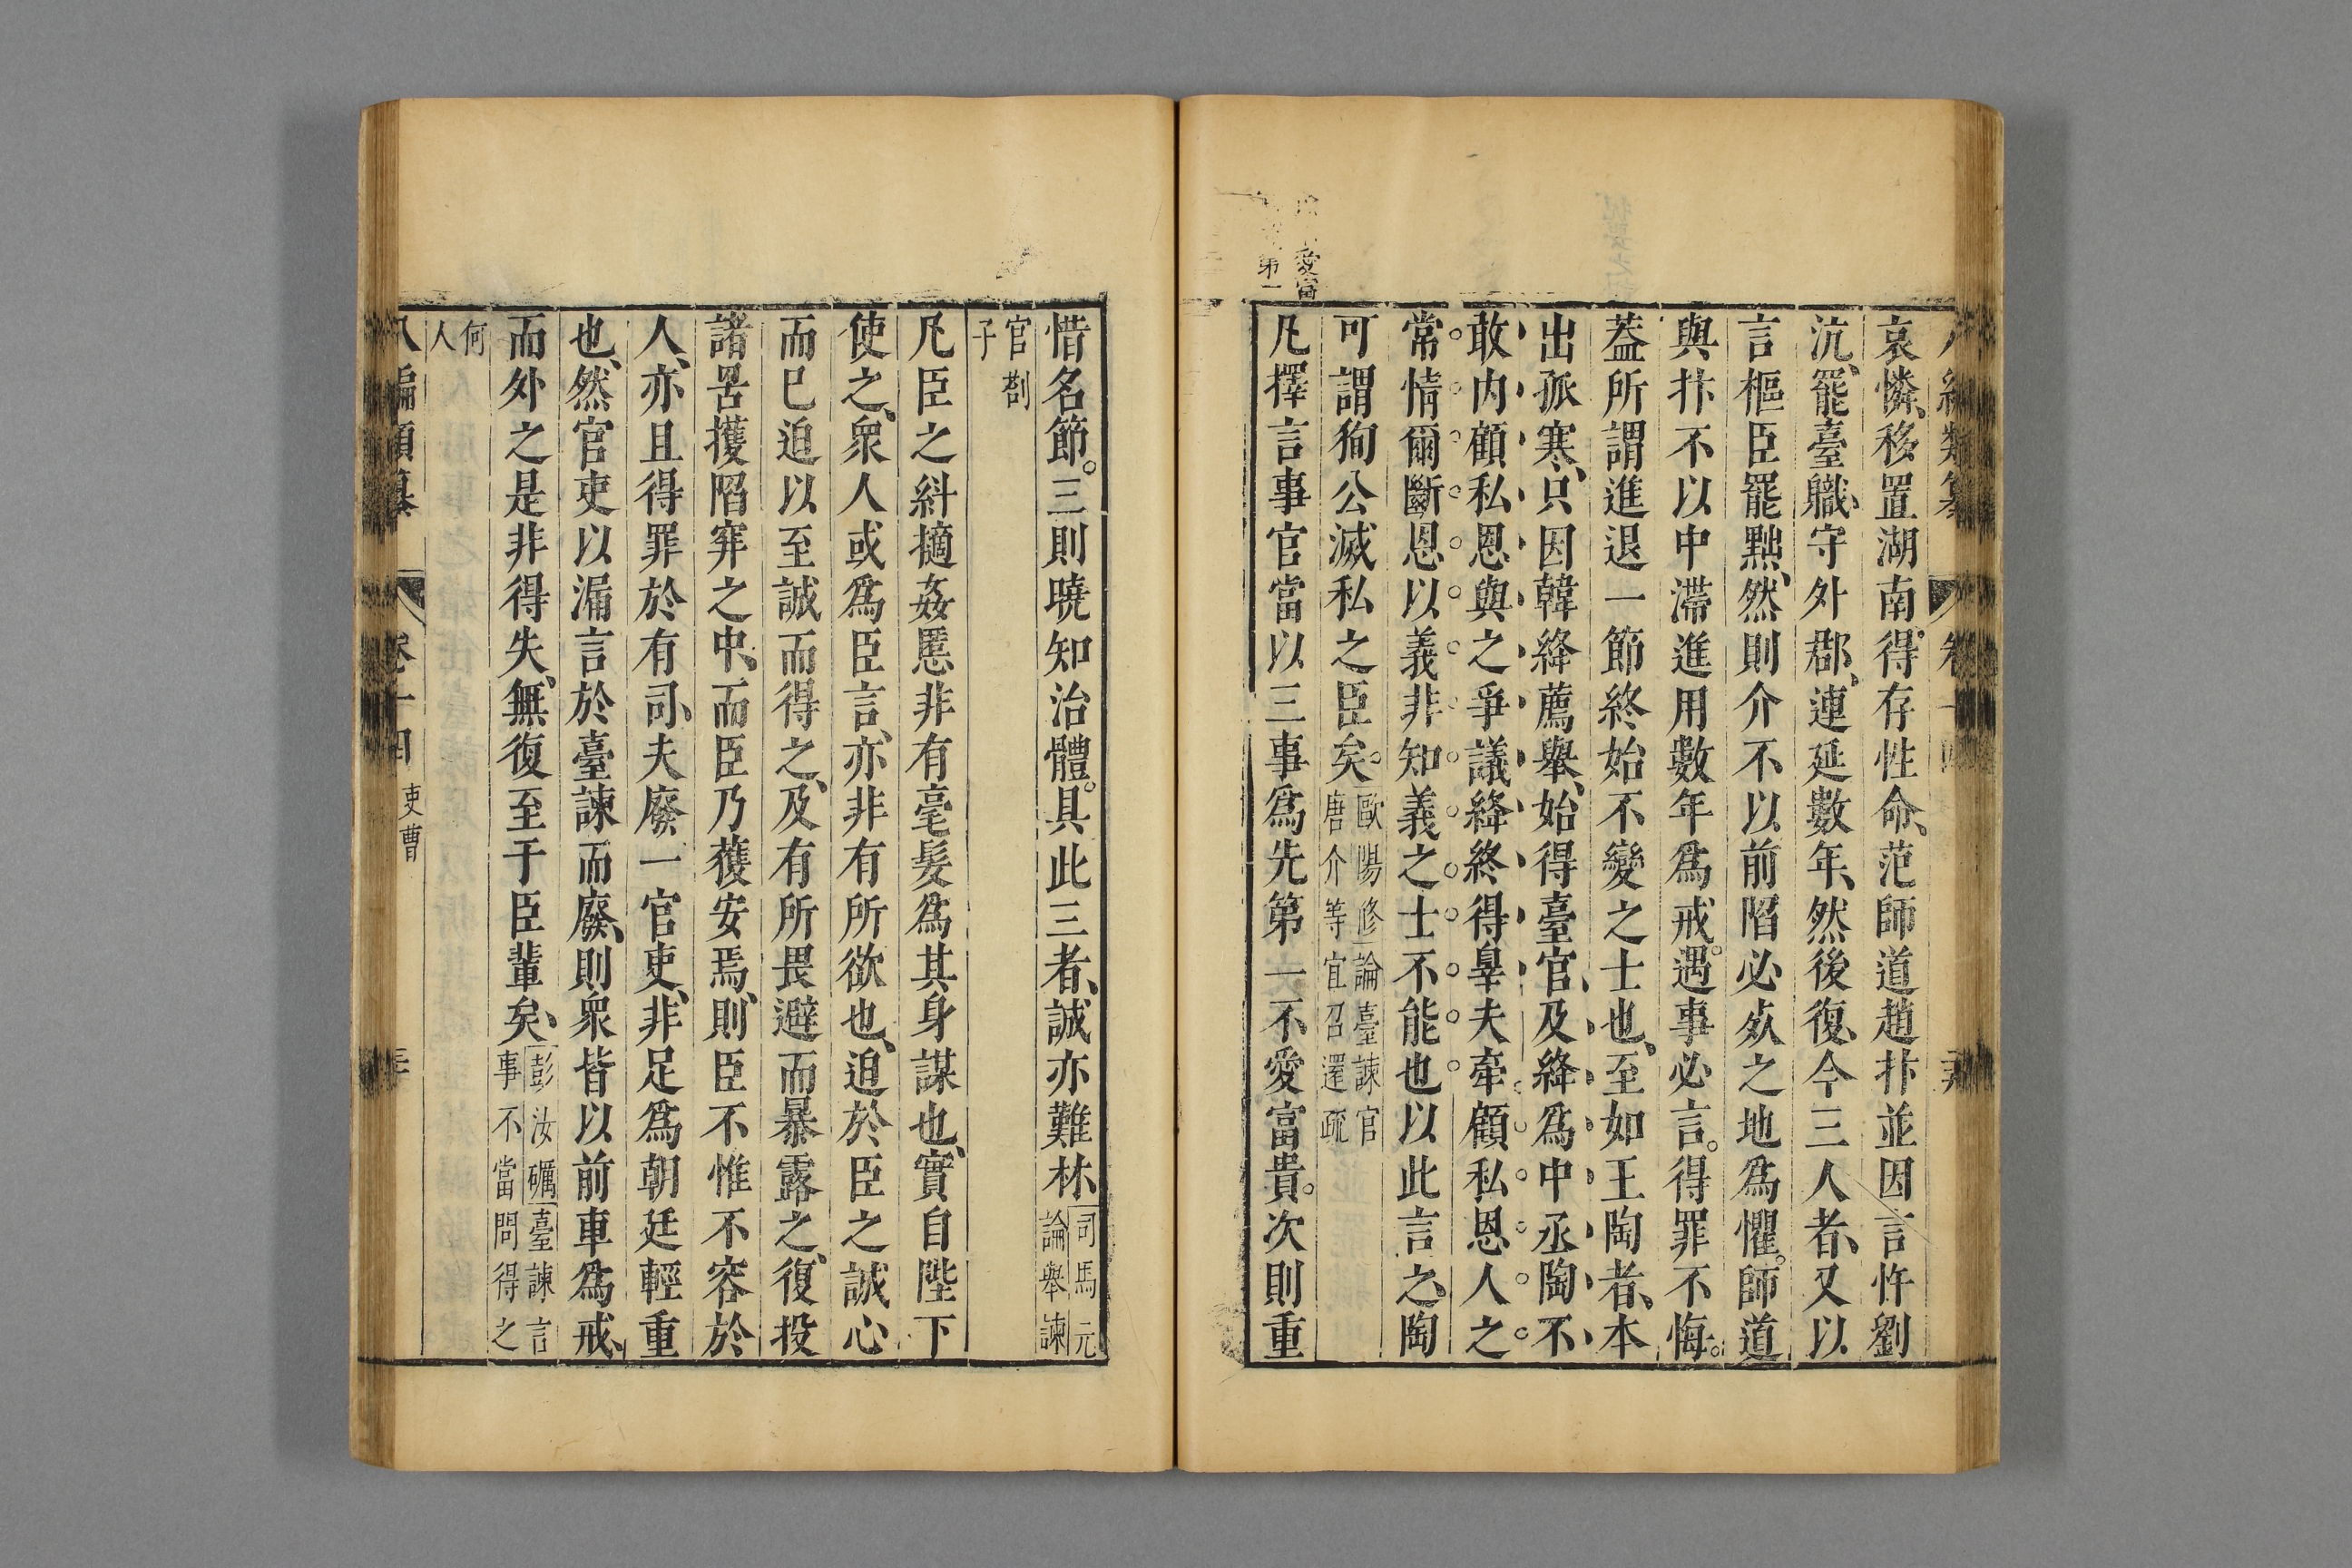 哀憐、移置湖南、得存性命、范師道趙抃並因言忤劉
沆、罷臺職、守外郡、連延數年、然後復、今三人者、又以
言樞臣罷黜、然則介不以前䧟必死之地爲懼。師道
與抃不以中滯進用數年爲戒。遇事必言。得罪不悔。
葢所謂進退一節終始不變之士也、至如王陶者、本
出孤寒、只因韓絳薦舉、始得臺官、及絳爲中丞、陶不
敢内顧私恩、與之爭議、絳終得辠、夫牽顧私恩、人之
常情爾、斷恩以義、非知義之士不能也、以此言之、陶
可謂狥公滅私之臣矣。歐陽修論臺諫官
唐介等宜召還疏
愛富
第一
凡擇言事官當以三事爲先第一不愛富貴。次則重
惜名節。三則曉知治體。具此三者、誠亦難林、司馬元
論舉諫
官劄
子
凡臣之糾擿姦慝非有毫髮爲其身謀也、實自陛下
使之、衆人或爲臣言、亦非有所欲也、迫於臣之誠心
而已迫以至誠而得之、及有所畏避而暴露之、復投
諸罟擭陷穽之中、而臣乃獲安焉、則臣不惟不容於
人、亦且得罪於有司、夫廢一官吏、非足爲朝廷輕重
也、然官吏以漏言於臺諫而廢、則衆皆以前車爲戒、
而外之是非得失、無復至于臣輩矣、彭汝礪臺諫言
事不當問得之
何
人
八編類纂 卷十四 吏曹